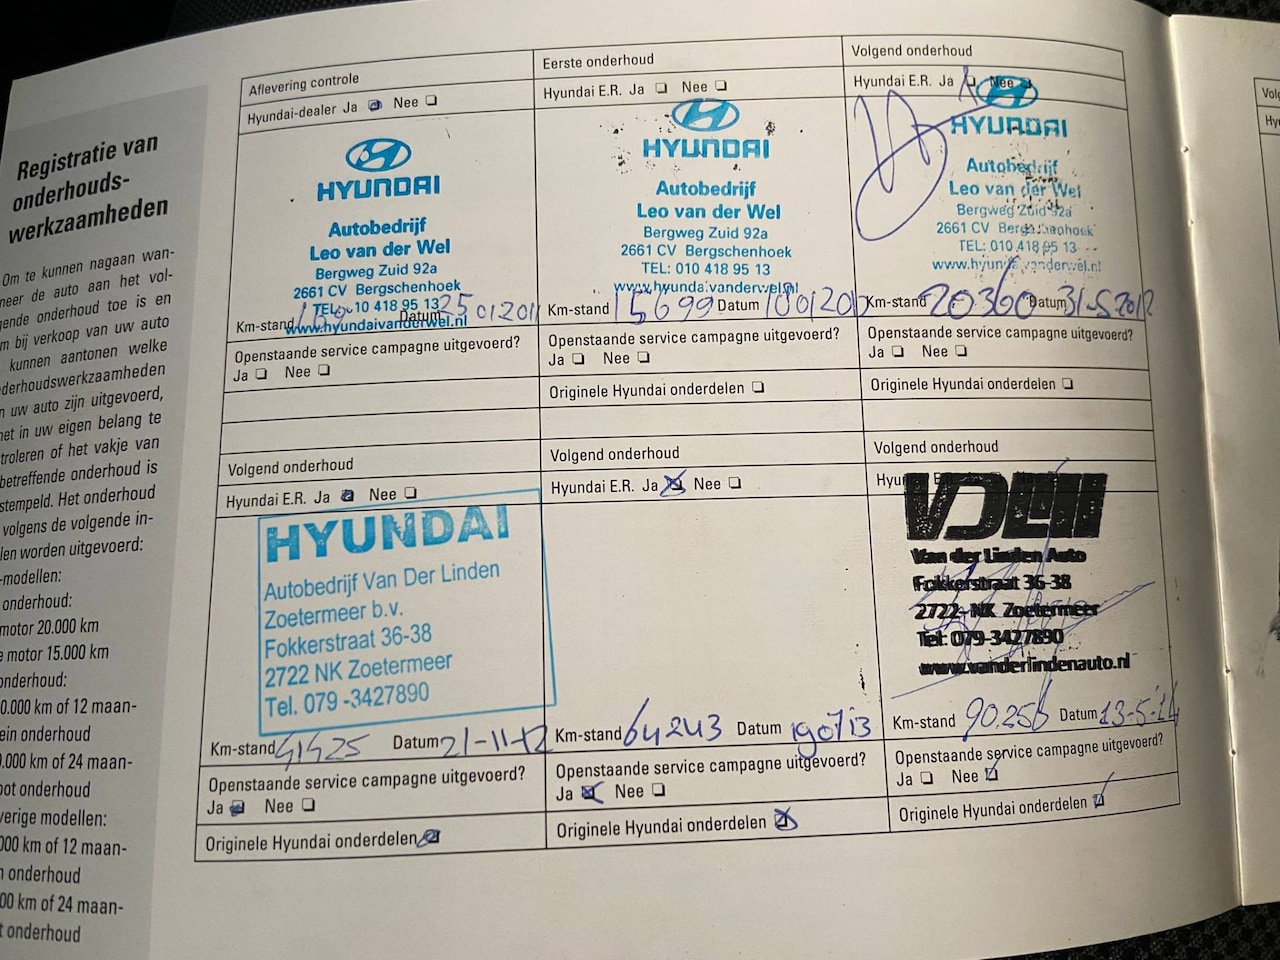 Registratie van
onderhouds-
werkzaamheden
Om te kunnen nagaan wan-
neer de auto aan het vol-
gende onderhoud toe is en
om bij verkoop van uw auto
kunnen aantonen welke
onderhoudswerkzaamheden
uw auto zijn uitgevoerd,
het in uw eigen belang te
troleren of het vakje van
betreffende onderhoud is
stempeld. Het onderhoud
volgens de volgende in-
len worden uitgevoerd:
-modellen:
onderhoud:
motor 20.000 km
motor 15.000 km
onderhoud:
0.000 km of 12 maan-
ein onderhoud
0.000 km of 24 maan-
oot onderhoud
verige modellen:
000 km of 12 maan-
onderhoud
00 km of 24 maan-
onderhoud
Aflevering controle
Hyundai-dealer Ja Nee
HYUNDAI
Autobedrijf
Leo van der Wel
Bergweg Zuid 92a
2661 CV Bergschenhoek
TEL: 010 418 95 13
www.hyundaivanderwel.nl
Km-stand Datum 25012011
Openstaande service campagne uitgevoerd?
Ja Nee
Eerste onderhoud
Hyundai E.R. Ja Nee
HYUNDAI
Autobedrijf
Leo van der Wel
Bergweg Zuid 92a
2661 CV Bergschenhoek
TEL: 010 418 95 13
www.hyundaivanderwel.nl
Km-stand 15699 Datum
Openstaande service campagne uitgevoerd?
Ja Nee
Originele Hyundai onderdelen
Volgend onderhoud
Hyundai E.R. Ja Nee
HYUNDAI
Autobedrijf
Leo van der Wel
Bergweg Zuid 92a
2661 CV Bergschenhoek
TEL: 010 418 95 13
www.hyundaivanderwel.nl
Km-stand 20360 Datum 31-5-2012
Openstaande service campagne uitgevoerd?
Ja Nee
Originele Hyundai onderdelen
Volgend onderhoud
Hyundai E.R. Ja Nee
HYUNDAI
Autobedrijf Van Der Linden
Zoetermeer b.v.
Fokkerstraat 36-38
2722 NK Zoetermeer
Tel. 079 -3427890
Km-stand 41425 Datum 21-11-12
Openstaande service campagne uitgevoerd?
Ja Nee
Originele Hyundai onderdelen
Volgend onderhoud
Hyundai E.R. Ja Nee
Km-stand 64243 Datum 190713
Openstaande service campagne uitgevoerd?
Ja Nee
Originele Hyundai onderdelen
Volgend onderhoud
Van der Linden Auto
Fokkerstraat 36-38
2722 NK Zoetermeer
Tel: 079-3427890
www.vanderlindenauto.nl
Km-stand 90.256 Datum 13-5-14
Openstaande service campagne uitgevoerd?
Ja Nee
Originele Hyundai onderdelen